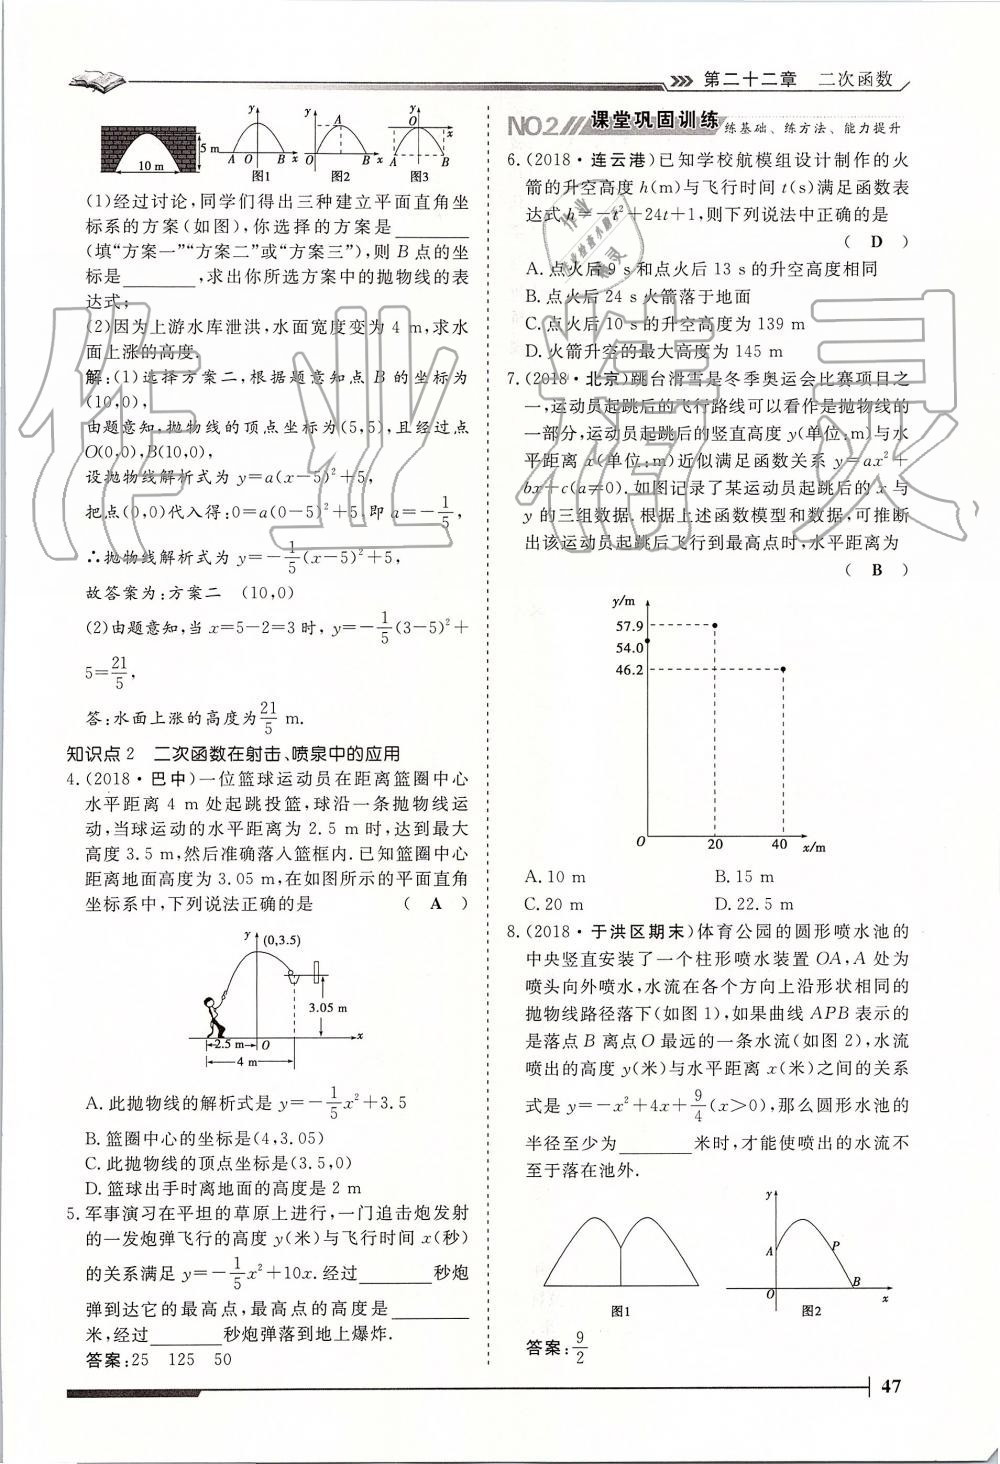 第二十二章　二次函数
5 m
10 m
y
A O B x
图1
y
A
O B x
图2
y
O x
A B
图3
(1)经过讨论,同学们得出三种建立平面直角坐
标系的方案(如图),你选择的方案是________
(填“方案一”“方案二”或“方案三”),则 B 点的坐
标是________,求出你所选方案中的抛物线的表
达式;
(2)因为上游水库泄洪,水面宽度变为 4 m,求水
面上涨的高度.
解:(1)选择方案二,根据题意知点 B 的坐标为
(10,0),
由题意知,抛物线的顶点坐标为(5,5),且经过点
O(0,0),B(10,0),
设抛物线解析式为 y=a(x−5)²+5,
把点(0,0)代入得:0=a(0−5)²+5,即 a=−1/5,
∴抛物线解析式为 y=−1/5(x−5)²+5,
故答案为:方案二　(10,0)
(2)由题意知,当 x=5−2=3 时, y=−1/5(3−5)²+
5=21/5,
答:水面上涨的高度为21/5 m.
知识点 2　二次函数在射击、喷泉中的应用
4.(2018·巴中)一位篮球运动员在距离篮圈中心
水平距离 4 m 处起跳投篮,球沿一条抛物线运
动,当球运动的水平距离为 2.5 m 时,达到最大
高度 3.5 m,然后准确落入篮框内.已知篮圈中心
距离地面高度为 3.05 m,在如图所示的平面直角
坐标系中,下列说法正确的是　( A )
y (0,3.5)
3.05 m
2.5 m O x
4 m
A. 此抛物线的解析式是 y=−1/5x²+3.5
B. 篮圈中心的坐标是(4,3.05)
C. 此抛物线的顶点坐标是(3.5,0)
D. 篮球出手时离地面的高度是 2 m
5. 军事演习在平坦的草原上进行,一门追击炮发射
的一发炮弹飞行的高度 y(米)与飞行时间 x(秒)
的关系满足 y=−1/5x²+10x.经过________秒炮
弹到达它的最高点,最高点的高度是________
米,经过________秒炮弹落到地上爆炸.
答案:25　125　50
NO.2 课堂巩固训练 练基础、练方法、能力提升
6.(2018·连云港)已知学校航模组设计制作的火
箭的升空高度 h(m)与飞行时间 t(s)满足函数表
达式 h=−t²+24t+1,则下列说法中正确的是
( D )
A. 点火后 9 s 和点火后 13 s 的升空高度相同
B. 点火后 24 s 火箭落于地面
C. 点火后 10 s 的升空高度为 139 m
D. 火箭升空的最大高度为 145 m
7.(2018·北京)跳台滑雪是冬季奥运会比赛项目之
一,运动员起跳后的飞行路线可以看作是抛物线的
一部分,运动员起跳后的竖直高度 y(单位:m)与水
平距离 x(单位:m)近似满足函数关系 y=ax²+
bx+c(a≠0).如图记录了某运动员起跳后的 x 与
y 的三组数据.根据上述函数模型和数据,可推断
出该运动员起跳后飞行到最高点时,水平距离为
( B )
y/m
57.9
54.0
46.2
O 20 40 x/m
A. 10 m　B. 15 m
C. 20 m　D. 22.5 m
8.(2018·于洪区期末)体育公园的圆形喷水池的
中央竖直安装了一个柱形喷水装置 OA,A 处为
喷头向外喷水,水流在各个方向上沿形状相同的
抛物线路径落下(如图 1),如果曲线 APB 表示的
是落点 B 离点 O 最远的一条水流(如图 2),水流
喷出的高度 y(米)与水平距离 x(米)之间的关系
式是 y=−x²+4x+9/4(x>0),那么圆形水池的
半径至少为________米时,才能使喷出的水流不
至于落在池外.
图1
y
A P
O B x
图2
答案:9/2
47
作业精灵